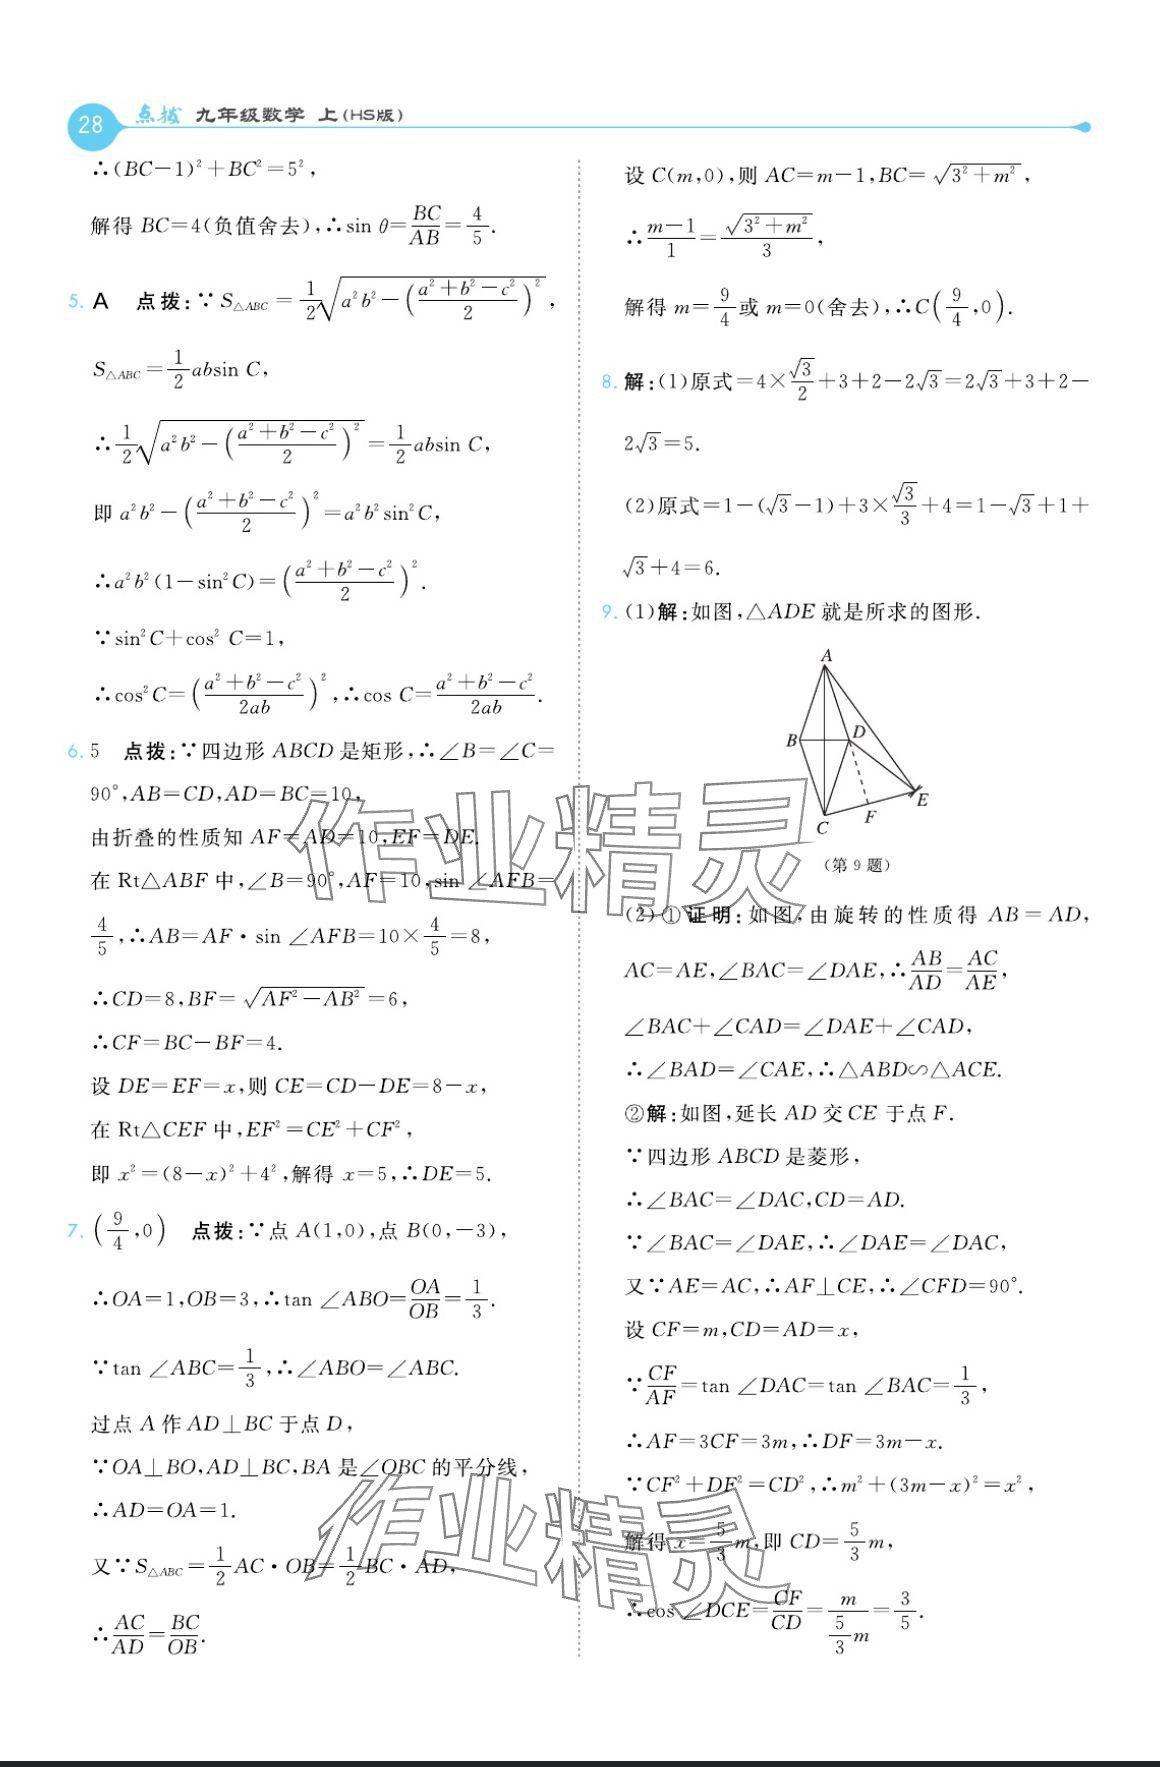 28 点拨 九年级数学 上(HS版)
∴(BC-1)²+BC²=5²,
解得 BC=4(负值舍去),∴sin θ=BC/AB=4/5.
5. A 点拨:∵S△ABC=1/2√(a²b²-((a²+b²-c²)/2)²),
S△ABC=1/2absin C,
∴1/2√(a²b²-((a²+b²-c²)/2)²)=1/2absin C,
即 a²b²-((a²+b²-c²)/2)²=a²b²sin²C,
∴a²b²(1-sin²C)=((a²+b²-c²)/2)².
∵sin²C+cos² C=1,
∴cos²C=((a²+b²-c²)/2ab)²,∴cos C=(a²+b²-c²)/2ab.
6. 5 点拨:∵四边形 ABCD 是矩形,∴∠B=∠C=
90°,AB=CD,AD=BC=10,
由折叠的性质知 AF=AD=10,EF=DE.
在 Rt△ABF 中,∠B=90°,AF=10,sin ∠AFB=
4/5,∴AB=AF·sin ∠AFB=10×4/5=8,
∴CD=8,BF=√(AF²-AB²)=6,
∴CF=BC-BF=4.
设 DE=EF=x,则 CE=CD-DE=8-x,
在 Rt△CEF 中,EF²=CE²+CF²,
即 x²=(8-x)²+4²,解得 x=5,∴DE=5.
7. (9/4,0) 点拨:∵点 A(1,0),点 B(0,-3),
∴OA=1,OB=3,∴tan ∠ABO=OA/OB=1/3.
∵tan ∠ABC=1/3,∴∠ABO=∠ABC.
过点 A 作 AD⊥BC 于点 D,
∵OA⊥BO,AD⊥BC,BA 是∠OBC 的平分线,
∴AD=OA=1.
又∵S△ABC=1/2AC·OB=1/2BC·AD,
∴AC/AD=BC/OB.
设 C(m,0),则 AC=m-1,BC=√(3²+m²),
∴(m-1)/1=√(3²+m²)/3,
解得 m=9/4或 m=0(舍去),∴C(9/4,0).
8. 解:(1)原式=4×√3/2+3+2-2√3=2√3+3+2-
2√3=5.
(2)原式=1-(√3-1)+3×√3/3+4=1-√3+1+
√3+4=6.
9. (1)解:如图,△ADE 就是所求的图形.
A
B
D
E
C
F
(第 9 题)
(2)①证明:如图,由旋转的性质得 AB=AD,
AC=AE,∠BAC=∠DAE,∴AB/AD=AC/AE,
∠BAC+∠CAD=∠DAE+∠CAD,
∴∠BAD=∠CAE,∴△ABD∽△ACE.
②解:如图,延长 AD 交 CE 于点 F.
∵四边形 ABCD 是菱形,
∴∠BAC=∠DAC,CD=AD.
∵∠BAC=∠DAE,∴∠DAE=∠DAC,
又∵AE=AC,∴AF⊥CE,∴∠CFD=90°.
设 CF=m,CD=AD=x,
∵CF/AF=tan ∠DAC=tan ∠BAC=1/3,
∴AF=3CF=3m,∴DF=3m-x.
∵CF²+DF²=CD²,∴m²+(3m-x)²=x²,
解得 x=5/3m,即 CD=5/3m,
∴cos ∠DCE=CF/CD=m/(5/3m)=3/5.
作业精灵
作业精灵